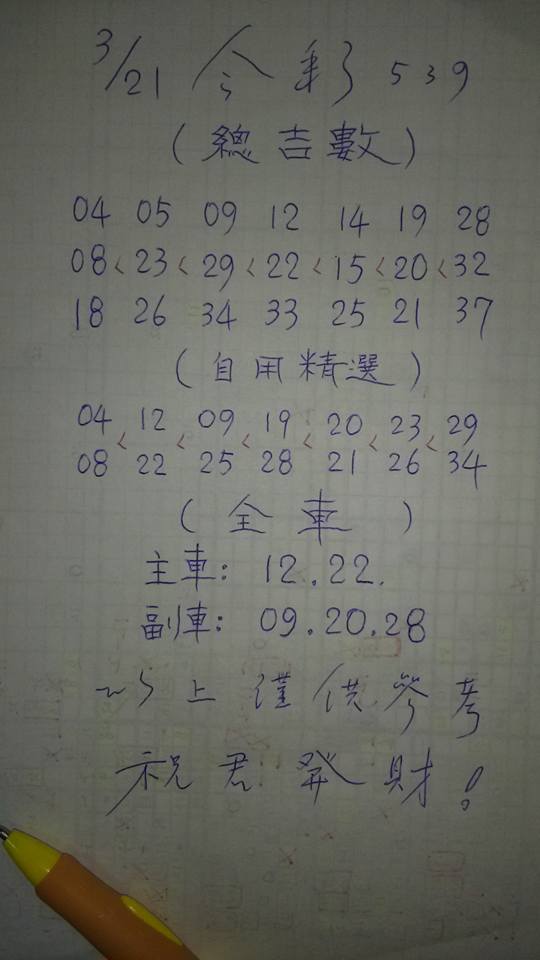 3/21 今彩539
(總吉數)
04 05 09 12 14 19 28
08 < 23 < 29 < 22 < 15 < 20 < 32
18 26 34 33 25 21 37
(自用精選)
04 < 12 < 09 < 19 < 20 < 23 < 29
08 22 25 28 21 26 34
(全車)
主車: 12.22.
副車: 09.20.28
以上僅供參考
祝君發財!